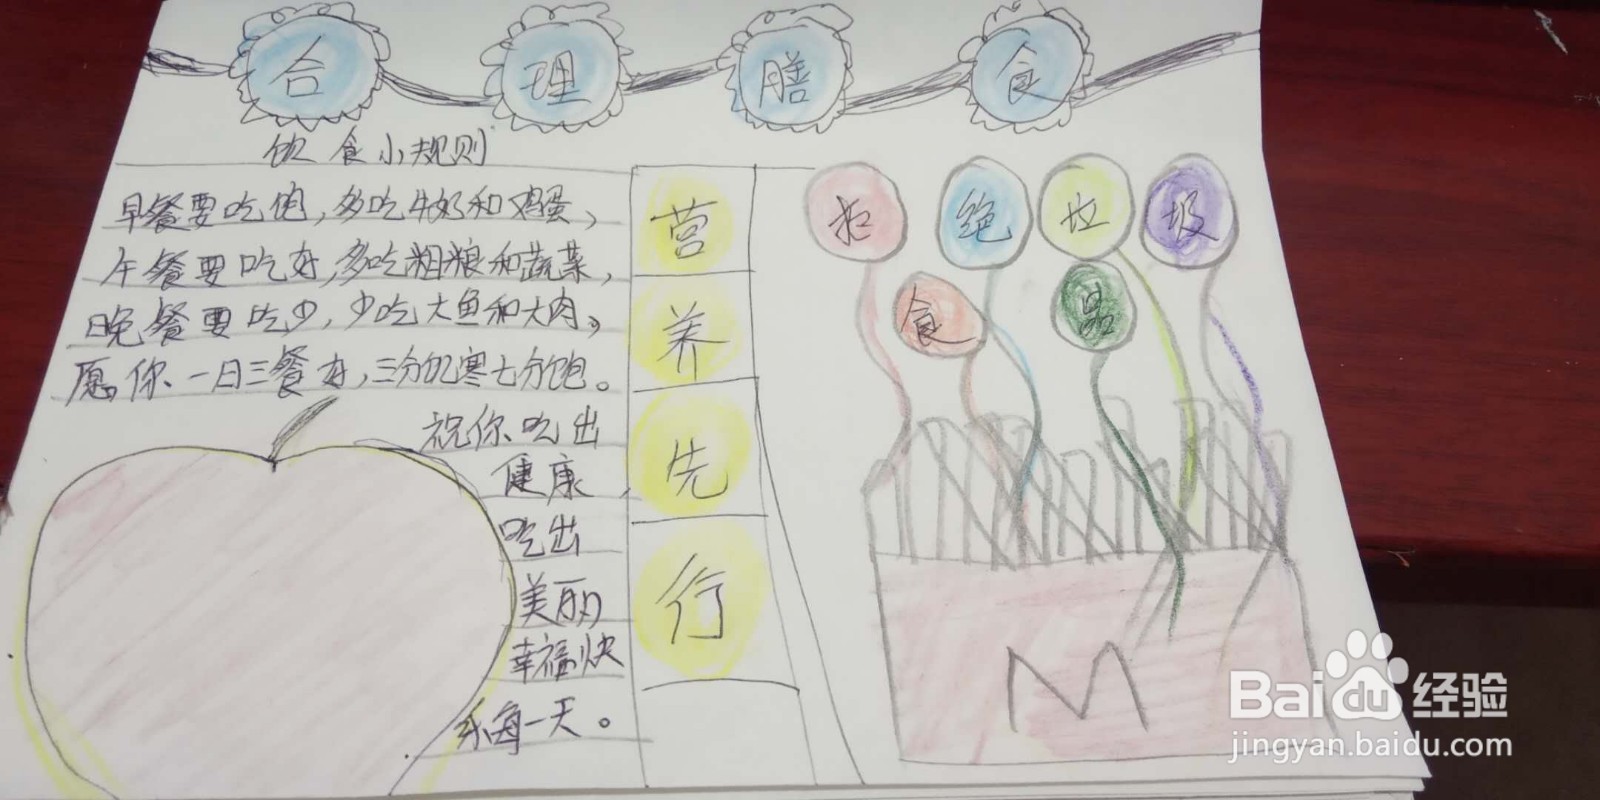 合理膳食
饮食小规则
早餐要吃饱,多吃牛奶和鸡蛋,
午餐要吃好,多吃粗粮和蔬菜,
晚餐要吃少,少吃大鱼和大肉,
愿你一日三餐好,三分饥寒七分饱。
祝你吃出
健康,
吃出
美丽
幸福快
乐每一天。
营
养
先
行
拒绝垃圾
食品
M
Baidu经验
jingyan.baidu.com